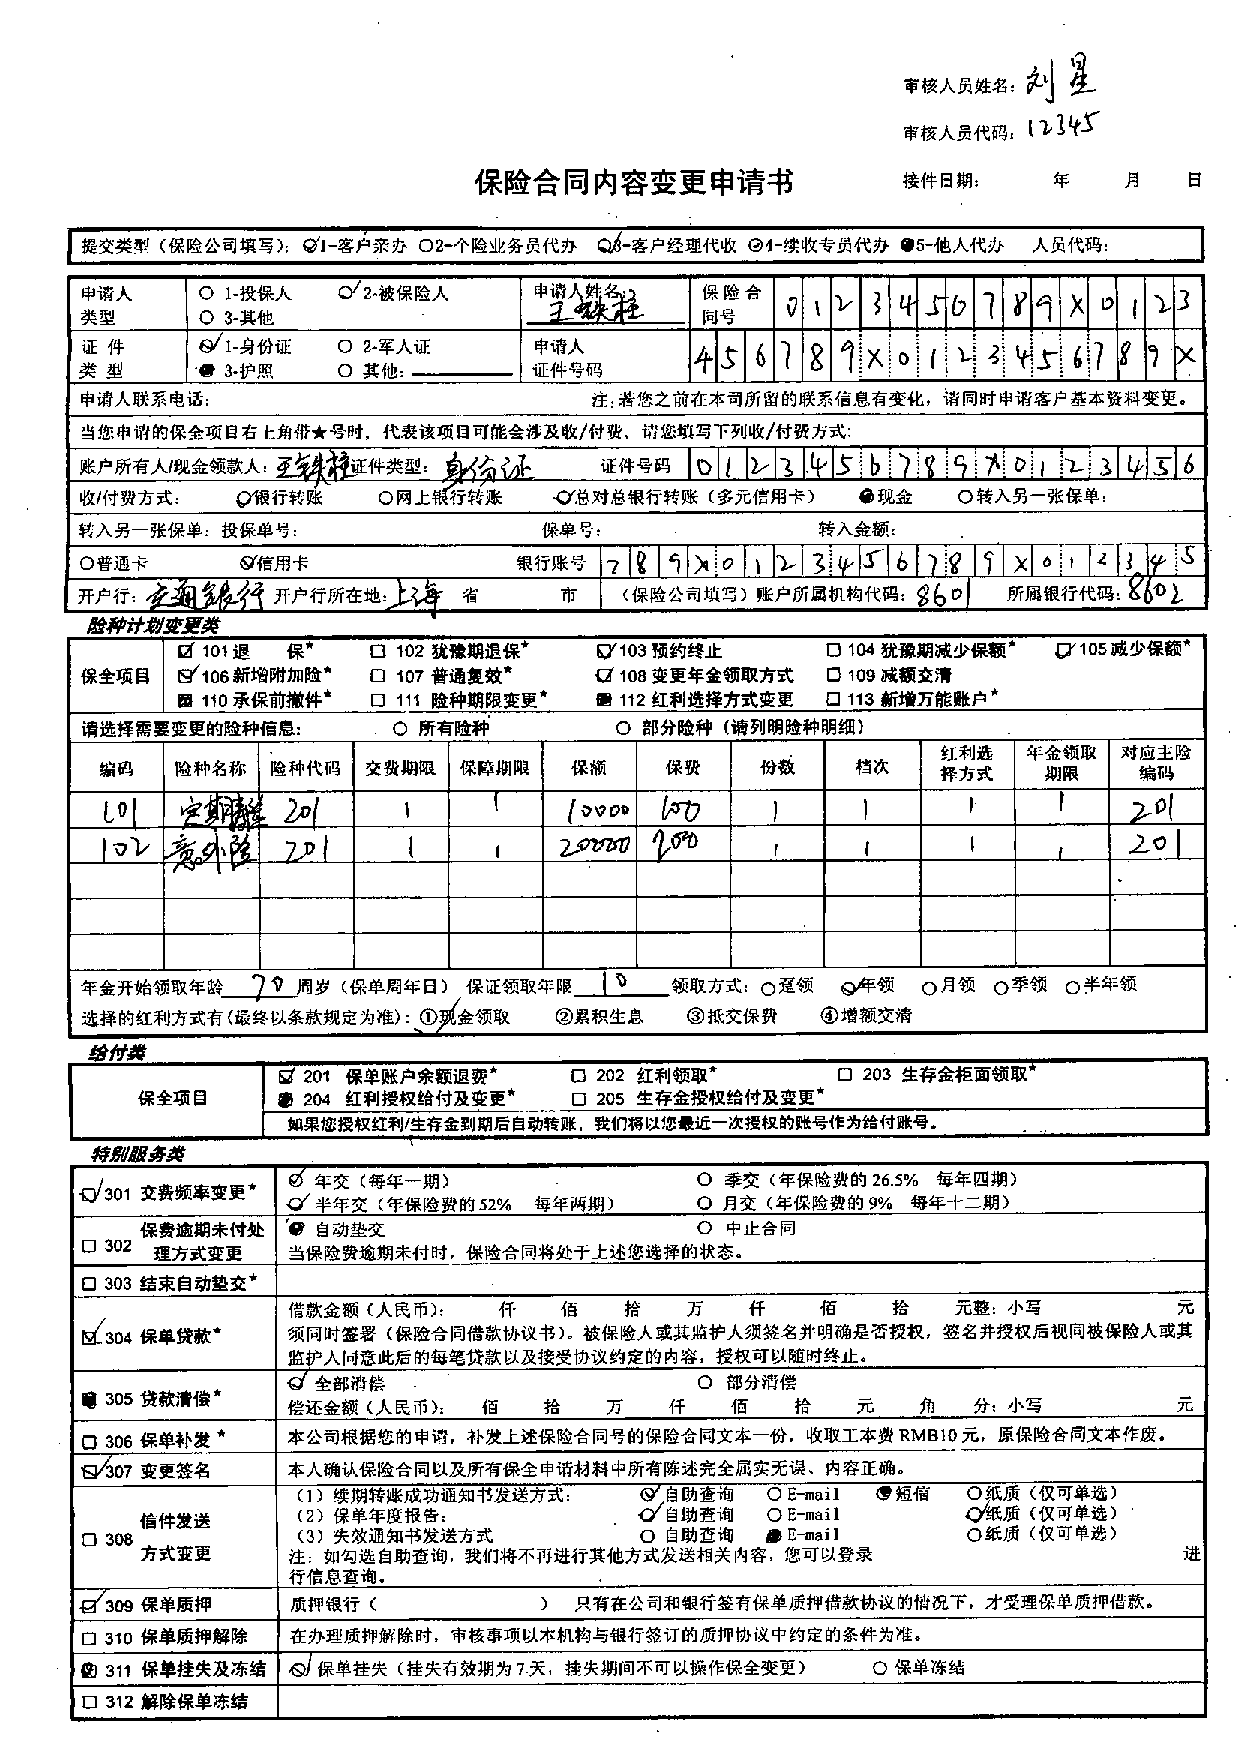 审核人员姓名：刘星
审核人员代码：12345
保险合同内容变更申请书 接件日期： 年 月 日
提交类型（保险公司填写）：1-客户亲办 ○2-个险业务员代办 3-客户经理代收 4-续收专员代办 5-他人代办 人员代码：
申请人类型 ○ 1-投保人 2-被保险人 ○ 3-其他 申请人姓名：王铁柱 保险合同号 0123456789X0123
证件类型 1-身份证 ○ 2-军人证 3-护照 ○ 其他： 申请人证件号码 456789X0123456789X
申请人联系电话： 注：若您之前在本司所留的联系信息有变化，请同时申请客户基本资料变更。
当您申请的保全项目右上角带★号时，代表该项目可能会涉及收/付费、请您填写下列收/付费方式：
账户所有人/现金领款人：王铁柱 证件类型：身份证 证件号码 0123456789X0123456
收/付费方式： 银行转账 ○网上银行转账 总对总银行转账（多元信用卡） 现金 ○转入另一张保单：
转入另一张保单：投保单号： 保单号： 转入金额：
○普通卡 信用卡 银行账号 789X0123456789X012345
开户行：交通银行 开户行所在地：上海 省 市 （保险公司填写）账户所属机构代码：8601 所属银行代码：8602
险种计划变更类
保全项目
101 退 保* □ 102 犹豫期退保* 103 预约终止 □ 104 犹豫期减少保额* 105 减少保额*
106 新增附加险* □ 107 普通复效* 108 变更年金领取方式 □ 109 减额交清
110 承保前撤件* □ 111 险种期限变更* 112 红利选择方式变更 □ 113 新增万能账户*
请选择需要变更的险种信息： ○ 所有险种 ○ 部分险种（请列明险种明细）
编码 险种名称 险种代码 交费期限 保障期限 保额 保费 份数 档次 红利选择方式 年金领取期限 对应主险编码
101 定期 201 1 1 10000 100 1 1 1 1 201
102 意外险 201 1 1 20000 200 1 1 1 1 201
年金开始领取年龄 70 周岁（保单周年日） 保证领取年限 10 领取方式：○趸领 年领 ○月领 ○季领 ○半年领
选择的红利方式有（最终以条款规定为准）：①现金领取 ②累积生息 ③抵交保费 ④增额交清
给付类
保全项目
201 保单账户余额退费* □ 202 红利领取* □ 203 生存金柜面领取*
204 红利授权给付及变更* □ 205 生存金授权给付及变更*
如果您授权红利/生存金到期后自动转账，我们将以您最近一次授权的账号作为给付账号。
特别服务类
301 交费频率变更* 年交（每年一期） ○ 季交（年保险费的 26.5% 每年四期）
半年交（年保险费的 52% 每年两期） ○ 月交（年保险费的 9% 每年十二期）
□ 302 保费逾期未付处理方式变更 自动垫交 ○ 中止合同
当保险费逾期未付时，保险合同将处于上述您选择的状态。
□ 303 结束自动垫交*
304 保单贷款* 借款金额（人民币）： 仟 佰 拾 万 仟 佰 拾 元整；小写 元
须同时签署（保险合同借款协议书）。被保险人或其监护人须签名并明确是否授权，签名并授权后视同被保险人或其
监护人同意此后的每笔贷款以及接受协议约定的内容，授权可以随时终止。
305 贷款清偿* 全部清偿 ○ 部分清偿
偿还金额（人民币）： 佰 拾 万 仟 佰 拾 元 角 分；小写 元
□ 306 保单补发* 本公司根据您的申请，补发上述保险合同号的保险合同文本一份，收取工本费 RMB10 元，原保险合同文本作废。
307 变更签名 本人确认保险合同以及所有保全申请材料中所有陈述完全属实无误、内容正确。
□ 308 信件发送方式变更
（1）续期转账成功通知书发送方式： 自助查询 ○ E-mail 短信 ○纸质（仅可单选）
（2）保单年度报告： 自助查询 ○ E-mail 纸质（仅可单选）
（3）失效通知书发送方式 ○ 自助查询 E-mail ○纸质（仅可单选）
注：如勾选自助查询，我们将不再进行其他方式发送相关内容，您可以登录 进
行信息查询。
309 保单质押 质押银行（ ） 只有在公司和银行签有保单质押借款协议的情况下，才受理保单质押借款。
□ 310 保单质押解除 在办理质押解除时，审核事项以本机构与银行签订的质押协议中约定的条件为准。
311 保单挂失及冻结 保单挂失（挂失有效期为 7 天，挂失期间不可以操作保全变更） ○ 保单冻结
□ 312 解除保单冻结